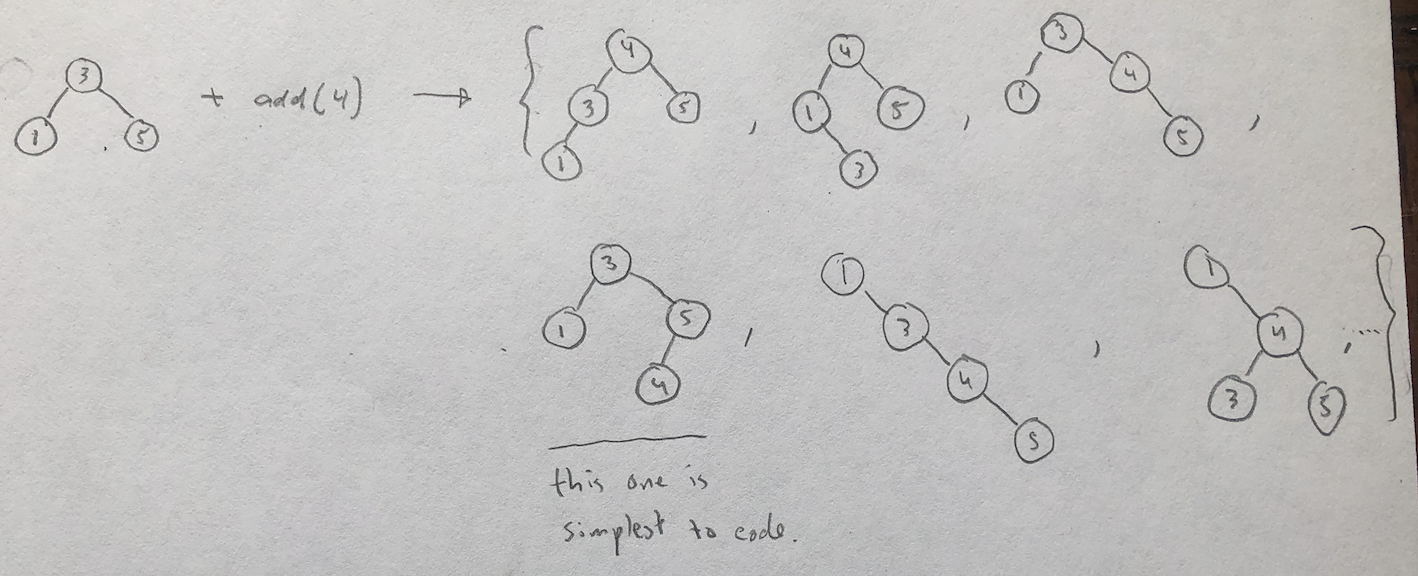 3
1 5 + add(4) → { 4 3 5 1 , 4 1 5 3 , 3 1 4 5 ,
3 1 5 4 , 1 3 4 5 , 1 4 3 5 , ..... }
this one is
simplest to code.